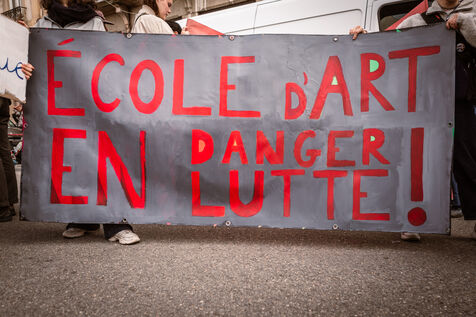 ÉCOLE d'ART
EN DANGER
LUTTE !